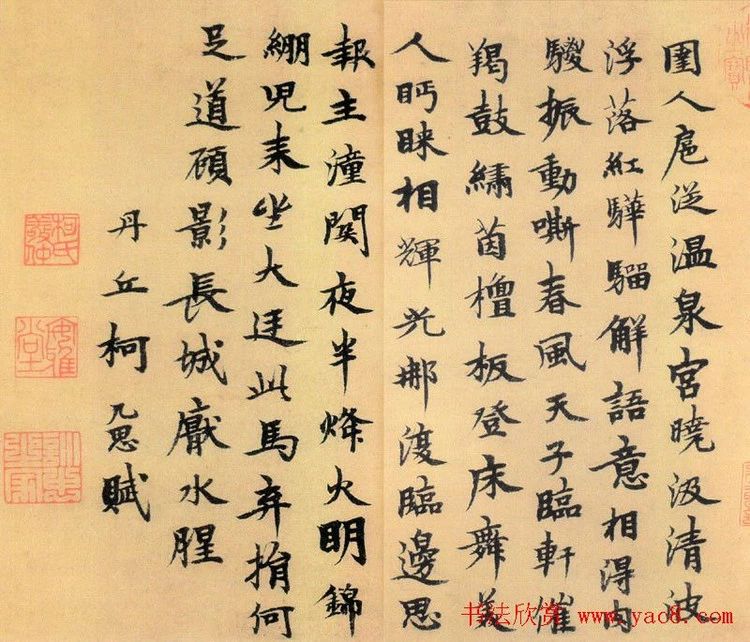 圉人扈從温泉宫曉汲清波
浮落紅驊騮解語意相得内
騣振動嘶春風天子臨軒催
羯鼓繡茵檀板登床舞美
人眄睞相輝光那復臨邊思
報主潼関夜半烽火明錦
綳兒来坐大廷此馬弃捐何
足道顧影長城厭水腥
丹丘柯九思賦
柯氏敬仲
书法欣赏 www.yac8.com